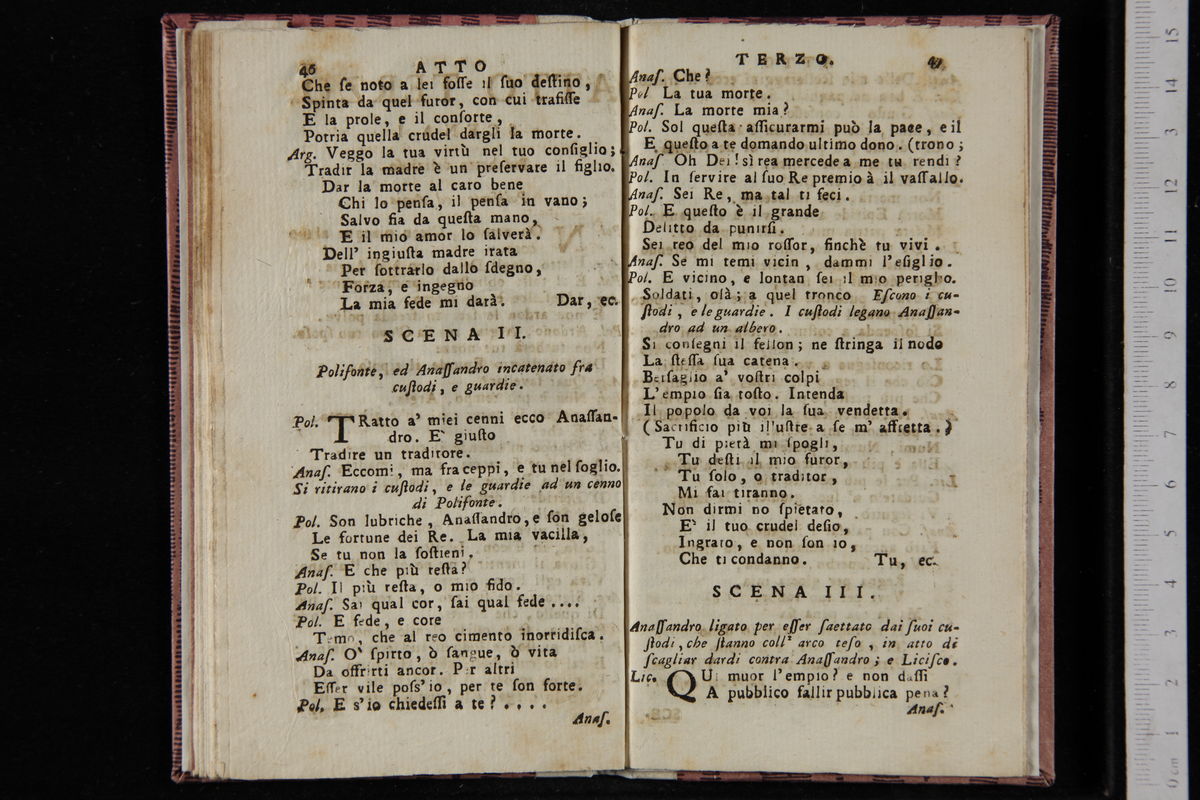 46 ATTO
Che ſe noto a lei foſſe il ſuo deſtino,
Spinta da quel furor, con cui trafiſſe
E la prole, e il conſorte,
Potria quella crudel dargli la morte.
Arg. Veggo la tua virtù nel tuo conſiglio;
Tradir la madre è un preſervare il figlio.
Dar la morte al caro bene
Chi lo penſa, il penſa in vano;
Salvo fia da queſta mano,
E il mio amor lo ſalverà.
Dell' ingiuſta madre irata
Per ſottrarlo dallo ſdegno,
Forza, e ingegno
La mia fede mi darà. Dar, ec.
SCENA II.
Polifonte, ed Anaſſandro incatenato fra
cuſtodi, e guardie.
Pol. TRatto a' miei cenni ecco Anaſſan-
dro. E' giuſto
Tradire un traditore.
Anaſ. Eccomi, ma fra ceppi, e tu nel ſoglio.
Si ritirano i cuſtodi, e le guardie ad un cenno
di Polifonte.
Pol. Son lubriche, Anaſſandro, e ſon geloſe
Le fortune dei Re. La mia vacilla,
Se tu non la ſoſtieni.
Anaſ. E che più reſta?
Pol. Il più reſta, o mio fido.
Anaſ. Sai qual cor, ſai qual fede ....
Pol. E fede, e core
Temo, che al reo cimento inorridiſca.
Anaſ. O' ſpirto, ò ſangue, ò vita
Da offrirti ancor. Per altri
Eſſer vile poſs'io, per te ſon forte.
Pol. E s'io chiedeſſi a te? ....
Anaſ.
TERZO. 47
Anaſ. Che?
Pol La tua morte.
Anaſ. La morte mia?
Pol. Sol queſta aſſicurarmi può la pace, e il
E queſto a te domando ultimo dono. (trono;
Anaſ Oh Dei! sì rea mercede a me tu rendi?
Pol. In ſervire al ſuo Re premio à il vaſſallo.
Anaſ. Sei Re, ma tal ti feci.
Pol. E queſto è il grande
Delitto da punirſi.
Sei reo del mio roſſor, finchè tu vivi.
Anaſ. Se mi temi vicin, dammi l'eſiglio.
Pol. E vicino, e lontan ſei il mio periglio.
Soldati, olà; a quel tronco Eſcono i cu-
ſtodi, e le guardie. I cuſtodi legano Anaſſan-
dro ad un albero.
Si conſegni il fellon; ne ſtringa il nodo
La ſteſſa ſua catena.
Berſaglio a' voſtri colpi
L'empio ſia toſto. Intenda
Il popolo da voi la ſua vendetta.
(Sacrificio più illuſtre a ſe m' affretta.)
Tu di pietà mi ſpogli,
Tu deſti il mio furor,
Tu ſolo, o traditor,
Mi fai tiranno.
Non dirmi no ſpietato,
E' il tuo crudel deſio,
Ingrato, e non ſon io,
Che ti condanno. Tu, ec.
SCENA III.
Anaſſandro ligato per eſſer ſaettato dai ſuoi cu-
ſtodi, che ſtanno coll' arco teſo, in atto di
ſcagliar dardi contra Anaſſandro; e Liciſco.
Lic. QUi muor l'empio? e non daſſi
A pubblico fallir pubblica pena?
Anaſ.